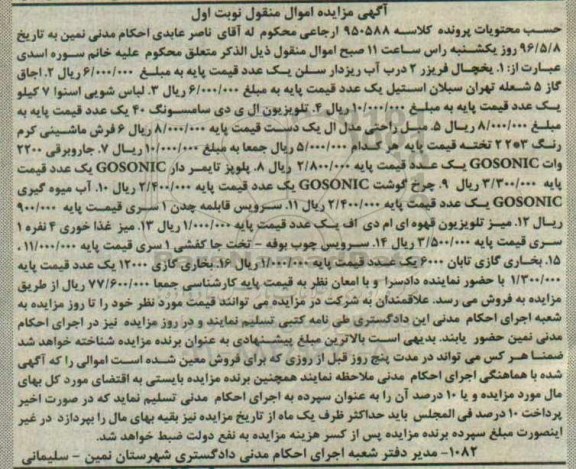 آگهی مزایده اموال منقول نوبت اول
حسب محتویات پرونده کلاسه ۹۵۰۵۸۸ ارجاعی محکوم له آقای ناصر عابدی احکام مدنی نمین به تاریخ
۹۶/۵/۸ روز یکشنبه راس ساعت ۱۱ صبح اموال منقول ذیل الذکر متعلق محکوم علیه خانم سوره اسدی
عبارت از: ۱. یخچال فریزر ۲ درب آب ریزدار سلن یک عدد قیمت پایه به مبلغ ۶/۰۰۰/۰۰۰ ریال ۲. اجاق
گاز ۵ شعله تهران سبلان استیل یک عدد قیمت پایه به مبلغ ۶/۰۰۰/۰۰۰ ریال ۳. لباس شویی اسنوا ۷ کیلو
یک عدد قیمت پایه به مبلغ ۱۰/۰۰۰/۰۰۰ ریال ۴. تلویزیون ال ی دی سامسونگ ۴۰ یک عدد قیمت پایه به
مبلغ ۸/۰۰۰/۰۰۰ ریال ۵. مبل راحتی مدل ال یک دست قیمت پایه ۸/۰۰۰/۰۰۰ ریال ۶ فرش ماشینی کرم
رنگ ۳*۲ ۲ تخته قیمت پایه هر کدام ۵/۰۰۰/۰۰۰ ریال جمعا به مبلغ ۱۰/۰۰۰/۰۰۰ ریال ۷. جاروبرقی ۲۲۰۰
وات GOSONIC یک عدد قیمت پایه ۲/۸۰۰/۰۰۰ ریال ۸. پلوپز تایمر دار GOSONIC یک عدد قیمت
پایه ۳/۳۰۰/۰۰۰ ریال ۹. چرخ گوشت GOSONIC یک عدد قیمت پایه ۲/۴۰۰/۰۰۰ ریال ۱۰. آب میوه گیری
GOSONIC یک عدد قیمت پایه ۲/۴۰۰/۰۰۰ ریال ۱۱. سرویس قابلمه چدن ۱ سری قیمت پایه ۹۰۰/۰۰۰
ریال ۱۲. میز تلویزیون قهوه ای ام دی اف یک عدد قیمت پایه ۱/۰۰۰/۰۰۰ ریال ۱۳. میز غذا خوری ۴ نفره ۱
سری قیمت پایه ۳/۵۰۰/۰۰۰ ریال ۱۴. سرویس چوب بوفه - تخت جا کفشی ۱ سری قیمت پایه ۱۱/۰۰۰/۰۰۰.
۱۵. بخاری گازی تابان ۶۰۰۰ یک عدد قیمت پایه ۱/۰۰۰/۰۰۰ ریال ۱۶. بخاری گازی ۱۲۰۰۰ یک عدد قیمت پایه
۱/۳۰۰/۰۰۰ با حضور نماینده دادسرا و با امعان نظر به قیمت پایه کارشناسی جمعا ۷۷/۶۰۰/۰۰۰ ریال از طریق
مزایده به فروش می رسد. علاقمندان به شرکت در مزایده می توانند قیمت مورد نظر خود را تا روز مزایده به
شعبه اجرای احکام مدنی این دادگستری طی نامه کتبی تسلیم نمایند و در روز مزایده نیز در اجرای احکام
مدنی نمین حضور یابند. بدیهی است بالاترین مبلغ پیشنهادی به عنوان برنده مزایده شناخته خواهد شد
ضمنا هر کس می تواند در مدت پنج روز قبل از روزی که برای فروش معین شده است اموالی را که آگهی
شده با هماهنگی اجرای احکام مدنی ملاحظه نمایند همچنین برنده مزایده بایستی به اقتضای مورد کل بهای
مال مورد مزایده و یا ۱۰ درصد آن را به عنوان سپرده به اجرای احکام مدنی تسلیم نماید که در صورت اخیر
پرداخت ۱۰ درصد فی المجلس باید حداکثر ظرف یک ماه از تاریخ مزایده نیز بقیه بهای مال را بپردازد در غیر
اینصورت مبلغ سپرده برنده مزایده پس از کسر هزینه مزایده به نفع دولت ضبط خواهد شد.
۱۰۸۲- مدیر دفتر شعبه اجرای احکام مدنی دادگستری شهرستان نمین - سلیمانی